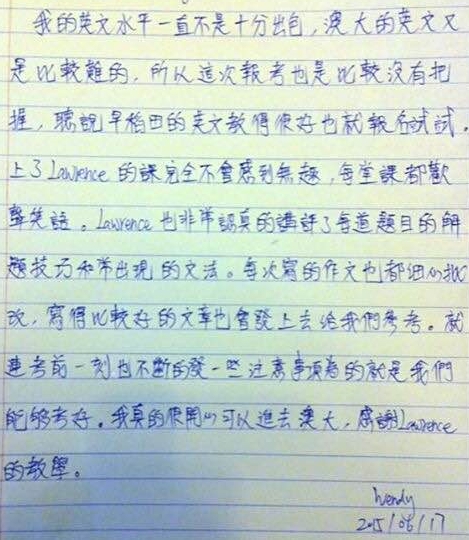 我的英文水平一直不是十分出色，澳大的英文又
是比較難的，所以這次報考也是比較沒有把
握，聽說早稻田的英文教得很好也就報名試試，
上了Lawrence 的課完全不會感到無趣，每堂課都歡
聲笑語。Lawrence也非常認真的講評了每道題目的解
題技巧和常出現的文法。每次寫的作文也都細心批
改，寫得比較好的文章也會發上去給我們參考。就
連考前一刻也不斷的發一些注意事項為的就是我們
能够考好。我真的很開心可以進去澳大，感謝Lawrence
的教學。
Wendy
2015/06/17